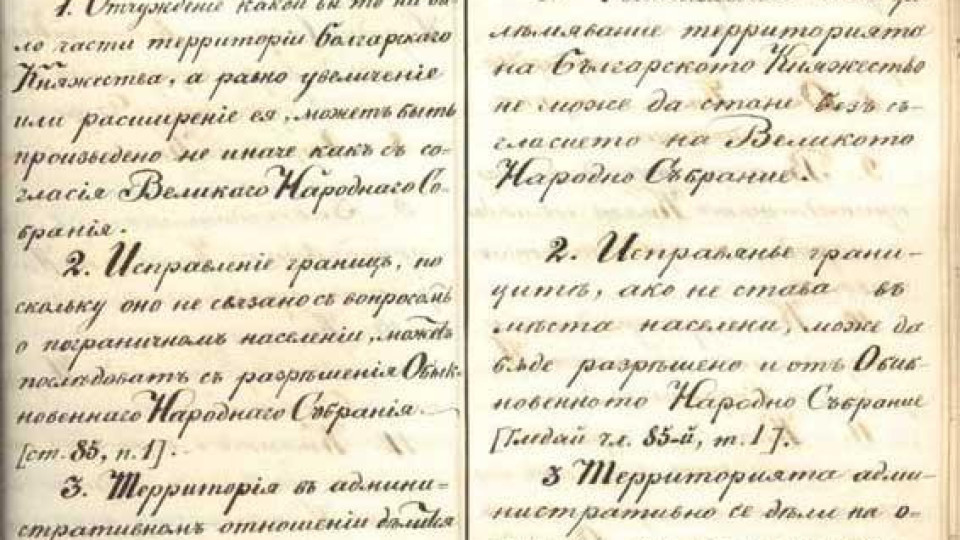 1. Отчужденіе какой бы то ни бы-
ло части территоріи Болгарскаго
Княжества, а равно увеличеніе
или расширеніе ея, можетъ быть
произведено не иначе какъ съ со-
гласія Великаго Народнаго Со-
бранія.
2. Исправленіе границъ, по
скольку оно не связано съ вопросомъ
о пограничномъ населеніи, можетъ
послѣдовать съ разрѣшенія Обык-
новеннаго Народнаго Събранія
[ст. 85, п. 1].
3. Территорія въ админи-
стративномъ отношеніи дѣлится
лѣмявание территорията
на Българското Княжество
не може да стане безъ съ-
гласието на Великото
Народно Събрание.
2. Исправянье грани-
цитѣ, ако не става въ
мѣста населени, може да
бѫде разрѣшено и отъ Обик-
новенното Народно Събрание
[Гледай чл. 85-й, т. 1].
3 Территорията адми-
нистративно се дѣли на о-